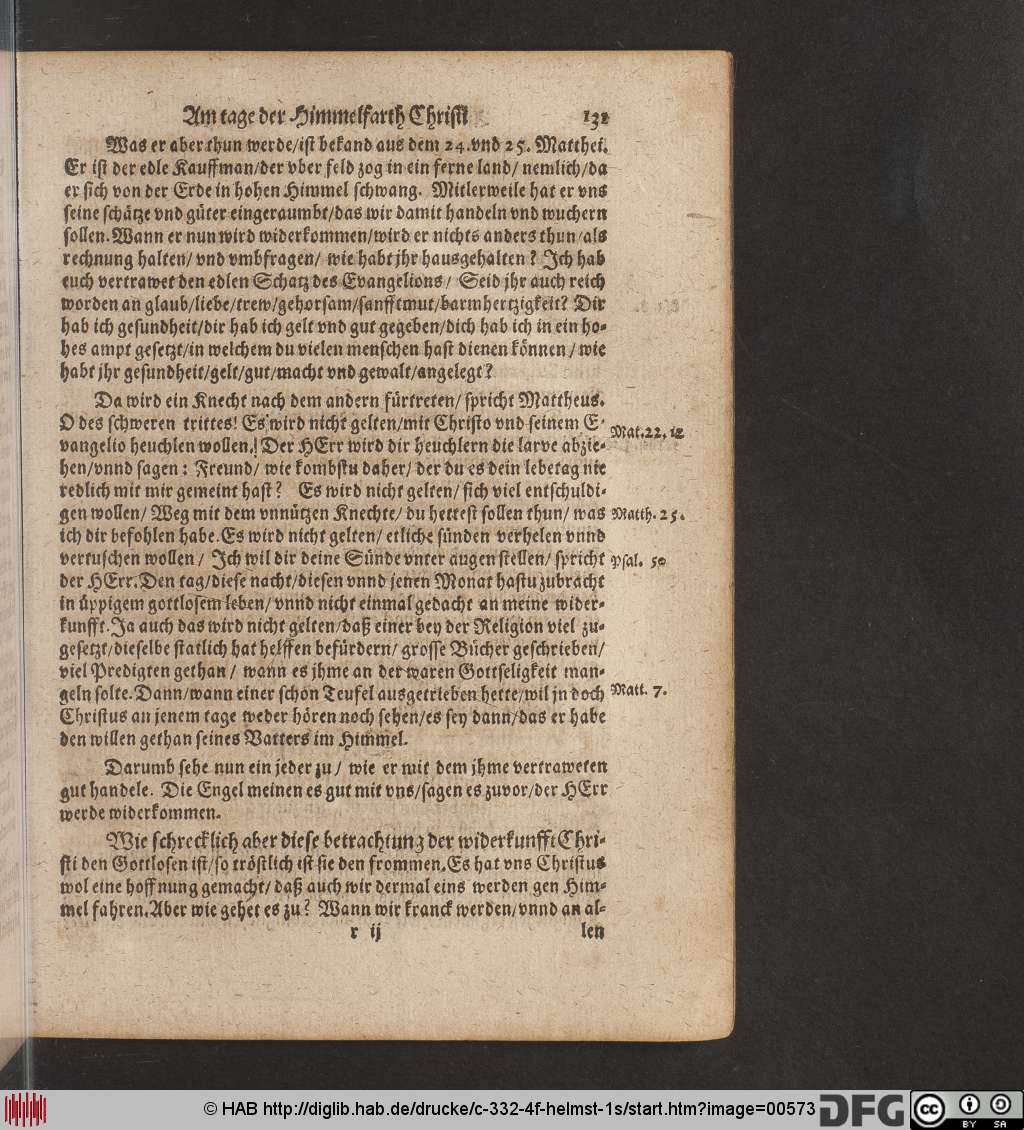 Am tage der Himmelfarth Christi 131
Was er aber thun werde/ist bekand aus dem 24.vnd 25. Matthei.
Er ist der edle Kauffman/der vber feld zog in ein ferne land/ nemlich/da
er sich von der Erde in hohen Himmel schwang. Mitlerweile hat er vns
seine schätze vnd güter eingeraumbt/das wir damit handeln vnd wuchern
sollen.Wann er nun wird widerkommen/wird er nichts anders thun/als
rechnung halten/ vnd vmbfragen/ wie habt jhr hausgehalten? Ich hab
euch vertrawet den edlen Schatz des Evangelions/ Seid jhr auch reich
worden an glaub/liebe/trew/gehorsam/sanfftmut/barmhertzigkeit? Dir
hab ich gesundheit/dir hab ich gelt vnd gut gegeben/dich hab ich in ein ho-
hes ampt gesetzt/in welchem du vielen menschen hast dienen können/ wie
habt jhr gesundheit/gelt/gut/macht vnd gewalt/angelegt?
Da wird ein Knecht nach dem andern fürtreten/ spricht Mattheus.
O des schweren trittes! Es wird nicht gelten/mit Christo vnd seinem E-
vangelio heuchlen wollen. Der HErr wird dir heuchlern die larve abzie-
Mat.22. 12
hen/vnnd sagen: Freund/ wie kombstu daher/ der du es dein lebetag nie
redlich mit mir gemeint hast? Es wird nicht gelten/ sich viel entschuldi-
gen wollen/ Weg mit dem vnnützen Knechte/ du hettest sollen thun/ was
Matth. 25.
ich dir befohlen habe.Es wird nicht gelten/ etliche sünden verhelen vnnd
vertuschen wollen/ Ich wil dir deine Sünde vnter augen stellen/ spricht
Psal. 50
der HErr.Den tag/diese nacht/diesen vnnd jenen Monat hastu zubracht
in üppigem gottlosem leben/ vnnd nicht einmal gedacht an meine wider-
kunfft.Ja auch das wird nicht gelten/daß einer bey der Religion viel zu-
gesetzt/dieselbe statlich hat helffen befürdern/ grosse Bücher geschrieben/
viel Predigten gethan/ wann es jhme an der waren Gottseligkeit man-
geln solte.Dann/wann einer schon Teufel ausgetrieben hette/wil jn doch
Matt. 7.
Christus an jenem tage weder hören noch sehen/es sey dann/das er habe
den willen gethan seines Vatters im Himmel.
Darumb sehe nun ein jeder zu/ wie er mit dem jhme vertraweten
gut handele. Die Engel meinen es gut mit vns/sagen es zuvor/der HErr
werde widerkommen.
Wie schrecklich aber diese betrachtung der widerkunfft Chri-
sti den Gottlosen ist/so tröstlich ist sie den frommen.Es hat vns Christus
wol eine hoffnung gemacht/ daß auch wir dermal eins werden gen Him-
mel fahren.Aber wie gehet es zu? Wann wir kranck werden/vnnd an al-
r ij len
© HAB http://diglib.hab.de/drucke/c-332-4f-helmst-1s/start.htm?image=00573
DFG
cc
BY SA